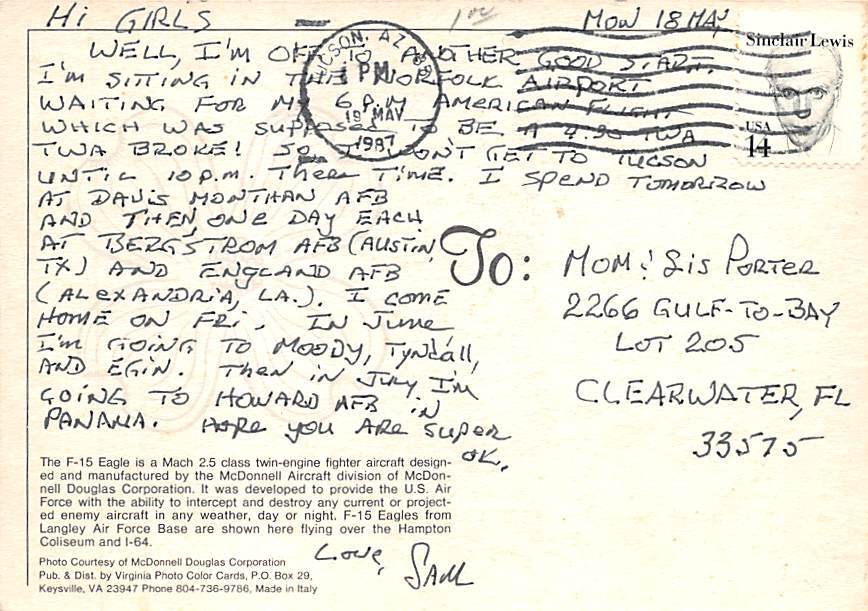 Hi GIRLS
MON 18 MAY
WELL, I'M OFF TO ANOTHER GOOD START.
I'M SITTING IN THE NORFOLK AIRPORT
WAITING FOR MY 6 P.M AMERICAN FLIGHT
WHICH WAS SUPPOSED TO BE A 4:30 TWA
TWA BROKE! SO I WON'T GET TO TUCSON
UNTIL 10 P.M. THERE TIME. I SPEND TOMORROW
AT DAVIS MONTHAN AFB
AND THEN, ONE DAY EACH
AT BERGSTROM AFB (AUSTIN,
TX) AND ENGLAND AFB
(ALEXANDRIA, LA.). I COME
HOME ON FRI. IN JUNE
I'M GOING TO MOODY, TYNDALL,
AND EGIN. THEN IN JULY I'M
GOING TO HOWARD AFB IN
PANAMA. HOPE YOU ARE SUPER
OK.
Love, SAM
TUCSON, AZ
PM
19 MAY
1987
Sinclair Lewis
USA
14
To:
MOM & SIS PORTER
2266 GULF-TO-BAY
LOT 205
CLEARWATER, FL
33575
The F-15 Eagle is a Mach 2.5 class twin-engine fighter aircraft design-
ed and manufactured by the McDonnell Aircraft division of McDon-
nell Douglas Corporation. It was developed to provide the U.S. Air
Force with the ability to intercept and destroy any current or project-
ed enemy aircraft in any weather, day or night. F-15 Eagles from
Langley Air Force Base are shown here flying over the Hampton
Coliseum and I-64.
Photo Courtesy of McDonnell Douglas Corporation
Pub. & Dist. by Virginia Photo Color Cards, P.O. Box 29,
Keysville, VA 23947 Phone 804-736-9786, Made in Italy